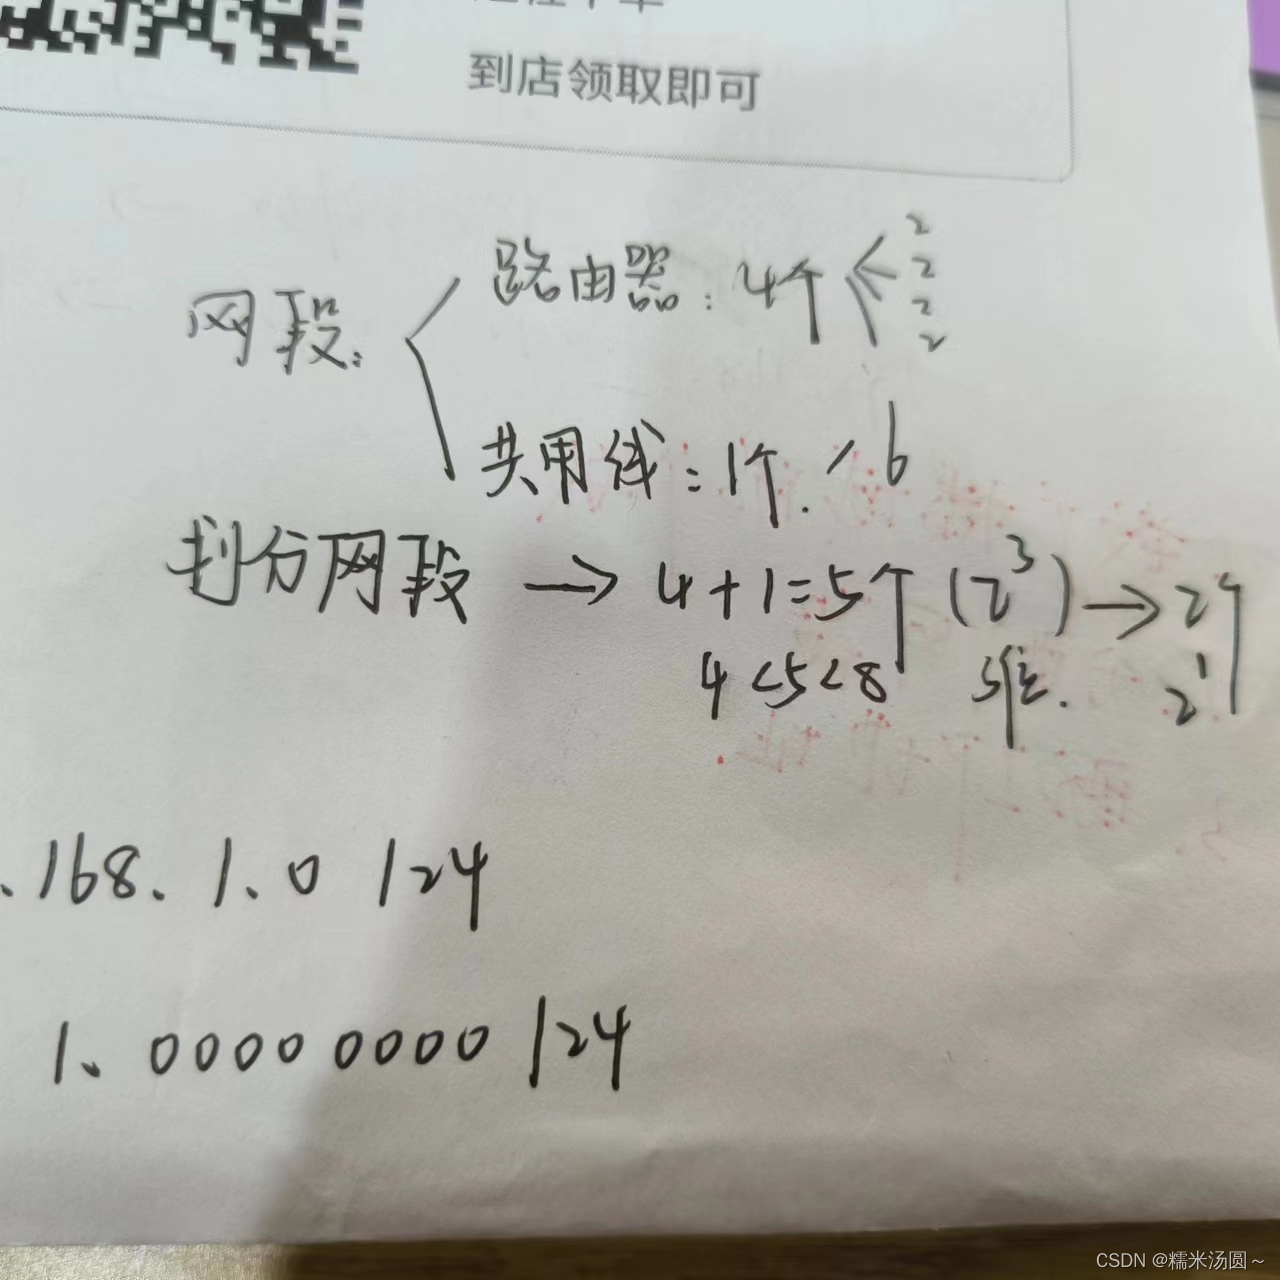 到店领取即可
路由器：4个 2 2 2 2
网段：
共用线：1个. / 6
划分网段 → 4+1=5个 (2³) → 2个
4<5<8 3位. 2¹
.168.1.0 /24
1.0000 0000 /24
CSDN @糯米汤圆～